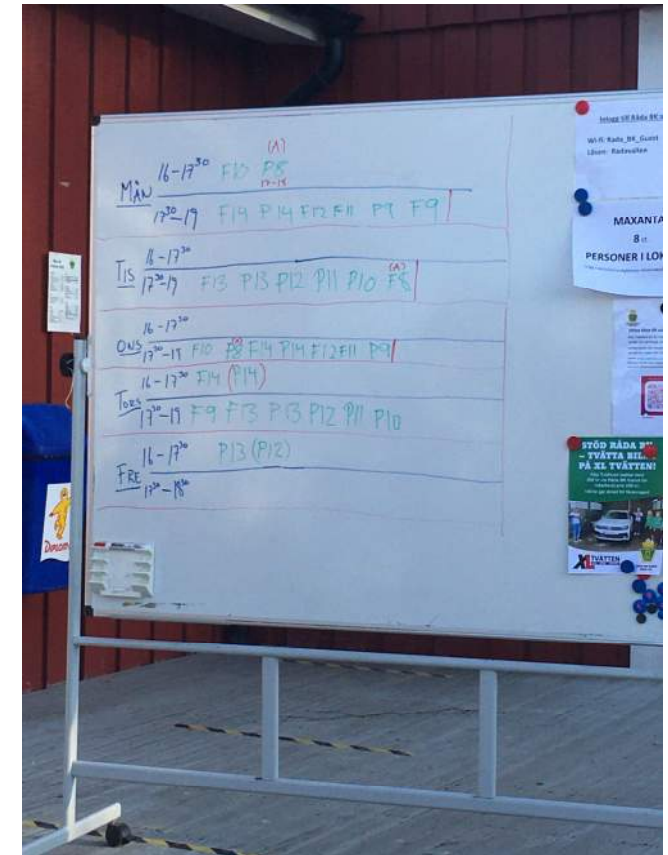 (A)
MÅN 16-17³⁰ F10 P8
17-18
17³⁰-19 F14 P14 F12 F11 P9 F9
TIS 16-17³⁰
(A)
17³⁰-19 F13 P13 P12 P11 P10 F8
ONS 16-17³⁰
17³⁰-19 F10 F14 P14 F12 F11 P9
TORS 16-17³⁰ F14 (P14)
17³⁰-19 F9 F13 P13 P12 P11 P10
FRE 16-17³⁰ P13 (P12)
17³⁰-18³⁰
Inlogg till Råda BK
Wi-fi: Rada_BK_Guest
Lösen: Radavallen
MAXANTA
8 st
PERSONER I LOK
STÖD RÅDA BK
– TVÄTTA BIL
PÅ XL TVÄTTEN!
XL TVÄTTEN